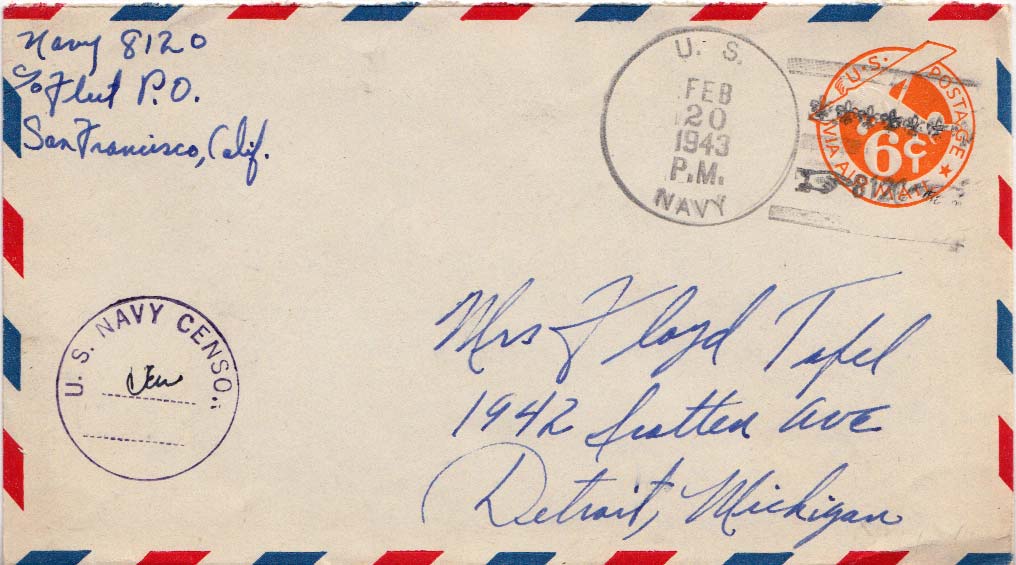 Navy 8120
c/o Fleet P.O.
San Francisco, Calif.
U. S.
FEB
20
1943
P.M.
NAVY
U.S. POSTAGE
6¢
VIA AIR MAIL
8120
U. S. NAVY CENSOR
Mrs Floyd Tafel
1942 Scotten Ave
Detroit, Michigan